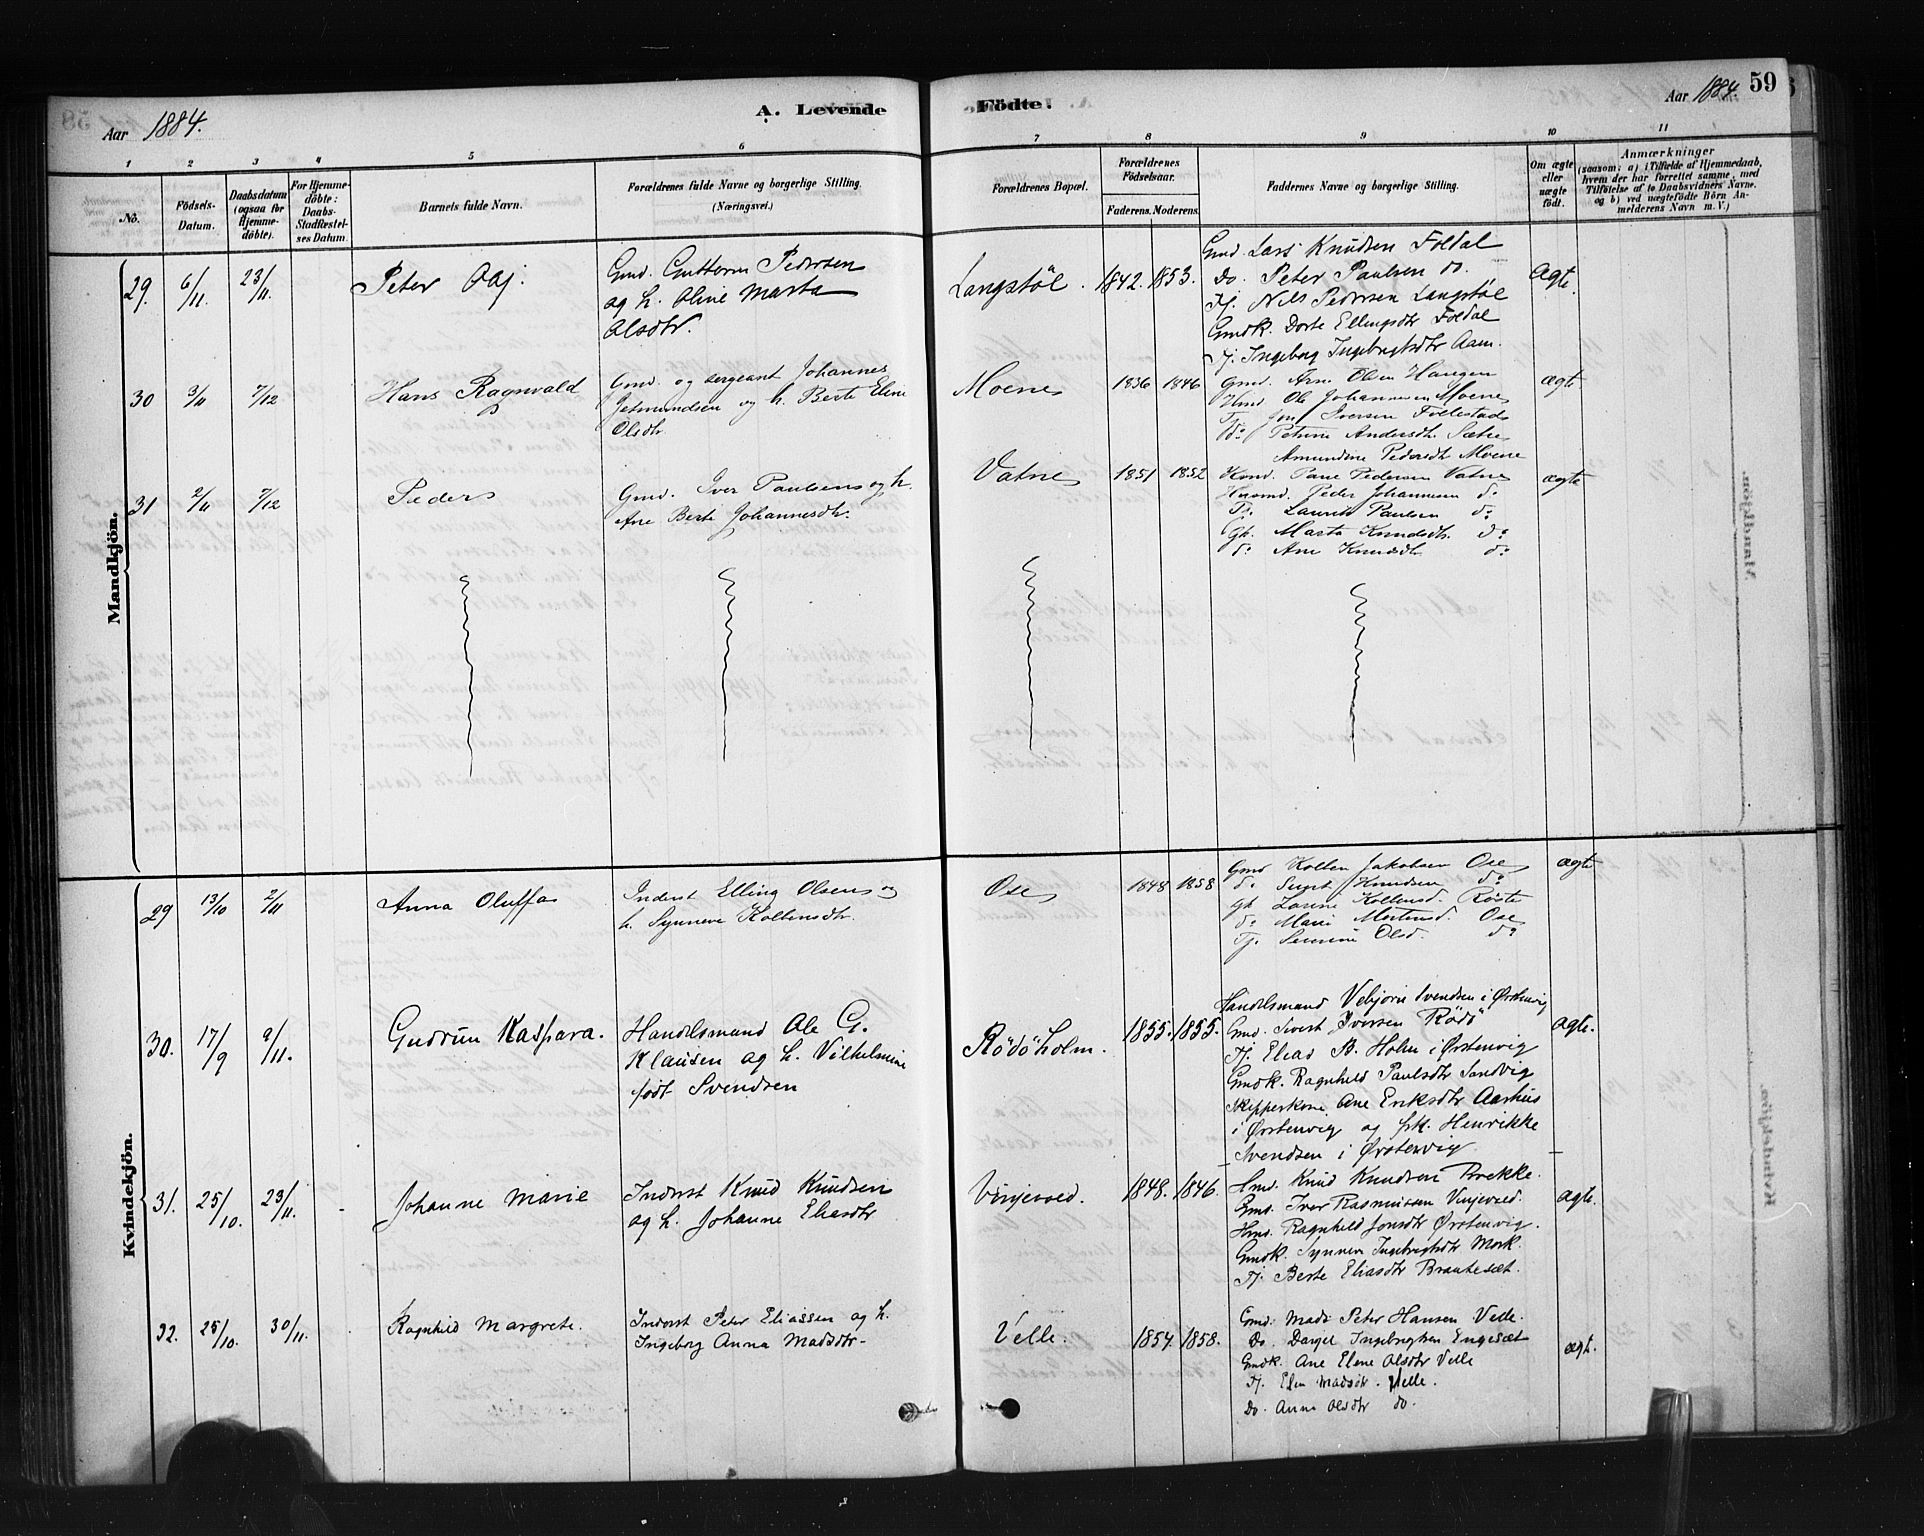 Aar 1884.
A. Levende
Födte.
Aar 1884.
59
1 2 3 4 5 6 7 8 9 10 11
No.
Födsels-
Datum.
Daabsdatum
(ogsaa for
Hjemme-
döbte).
For Hjemme-
döbte:
Daabs-
Stadfæstel-
ses Datum.
Barnets fulde Navn.
Forældrenes fulde Navne og borgerlige Stilling.
(Næringsvei.)
Forældrenes Bopæl.
Forældrenes
Födselsaar.
Faderens. Moderens.
Faddernes Navne og borgerlige Stilling.
Om ægte
eller
uægte
født.
Anmærkninger
(saasom: a) i Tilfælde af Hjemmedaab,
hvem der har forrettet samme, med
Tilföielse af to Daabsvidners Navne.
og b) ved uægtefödte Börn An-
melderens Navn m. V.)
Mandkjön.
29. 6/11. 23/11. Peter Olaj.
Gmd. Guttorm Pedersen
og h. Oline Marta
Olsdtr.
Langstöl. 1842. 1853.
Gmd. Lars Knudsen Foldal
Do. Peter Paulsen do.
Tj. Nils Pedersen Langstöl
Gmdk. Dorte Ellingsdtr Foldal
Tj. Ingeborg Ingebrigtsdtr Aam.
ægte.
30 3/11 7/12 Hans Ragnvald
Gmd. og sergeant Johannes
Jetmundsen og h. Berte Eline
Olsdtr
Moene 1836 1846
Gmd. Arne Olsen Haugen
Hmd Ole Johannesen Moene
Tj. Jon Iversen Follestad
do Petrine Andersdtr. Sætre
Amundine Pedersdtr Moene
ægte
31 2/11 7/12 Peder
Gmd. Iver Paulsen og h.
Ane Berte Johannesdtr.
Vatne 1851 1852
Pedersen Vatne
Husmd. Peder Johannesen do
Tj. Laurits Paulsen do
Gk. Marta Knudsdtr. do
do Ane Knudsdtr do
ægte
Kvindekjön.
29 13/10 2/11 Anna Oluffa
Inderst Elling Olsen og
h. Synneve Koltensdtr.
Ose 1848 1858
Gmd Kolben Jakobsen Ose
do Sivert Knudsen do
Gk. Larine Koltensd. Röste
do Marie Mortensd. Ose
Tj. Severine Olsd. do
ægte
30. 17/9 9/11. Gudrun Kaspara.
Handelsmand Ole G.
Klausen og h. Vilhelmine
født Svendsen
Rödöholm. 1855. 1855.
Handelsmand Vebjörn Svendsen i Ørstenvig
Gmd. Sivert Iversen Rödö
Tj. Elias B. Holm i Ørstenvig
Gmdk. Ragnhild Paulsdtr Sandvig
Skipperkone Ane Eriksdtr Aarhus
i Ørstenvig og frk. Henrikke
Svendsen i Ørstenvig
ægte.
31. 25/10. 23/11. Johanne Marie
Inderst Knud Knudsen
og h. Johanne Eliasdtr
Vinjevold. 1848. 1846.
Hmd. Knud Knudsen Brekke.
Gmd. Iver Rasmussen Vinjevold.
Hmd. Ragnhild Jonsdtr Ørstenvig.
Gmdk. Synneve Ingebrigtsdtr Mork.
Tj. Berte Eliasdtr Brautesæt.
ægte.
32. 25/10. 30/11. Ragnhild Margrete.
Inderst Peter Eliassen og h.
Ingeborg Anna Madsdtr.
Velle. 1854. 1858.
Gmd. Mads Peter Hansen Velle.
Do. Daniel Ingebrigtsen Engesæt
Gmdk. Ane Elene Olsdtr Velle
Tj. Elen Madsdtr. Velle.
Do. Anna Olsdtr do.
ægt.